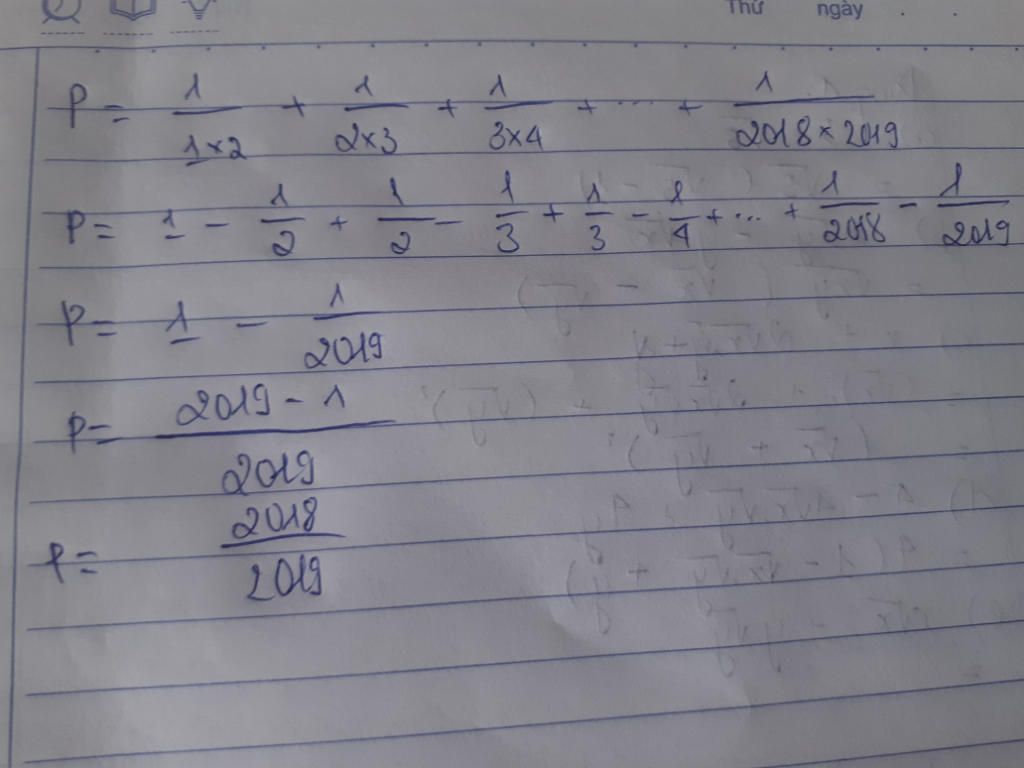 Thứ ngày . .
P = 1/1×2 + 1/2×3 + 1/3×4 + ... + 1/2018×2019
P = 1 - 1/2 + 1/2 - 1/3 + 1/3 - 1/4 + ... + 1/2018 - 1/2019
P = 1 - 1/2019
P = 2019 - 1/2019
P = 2018/2019